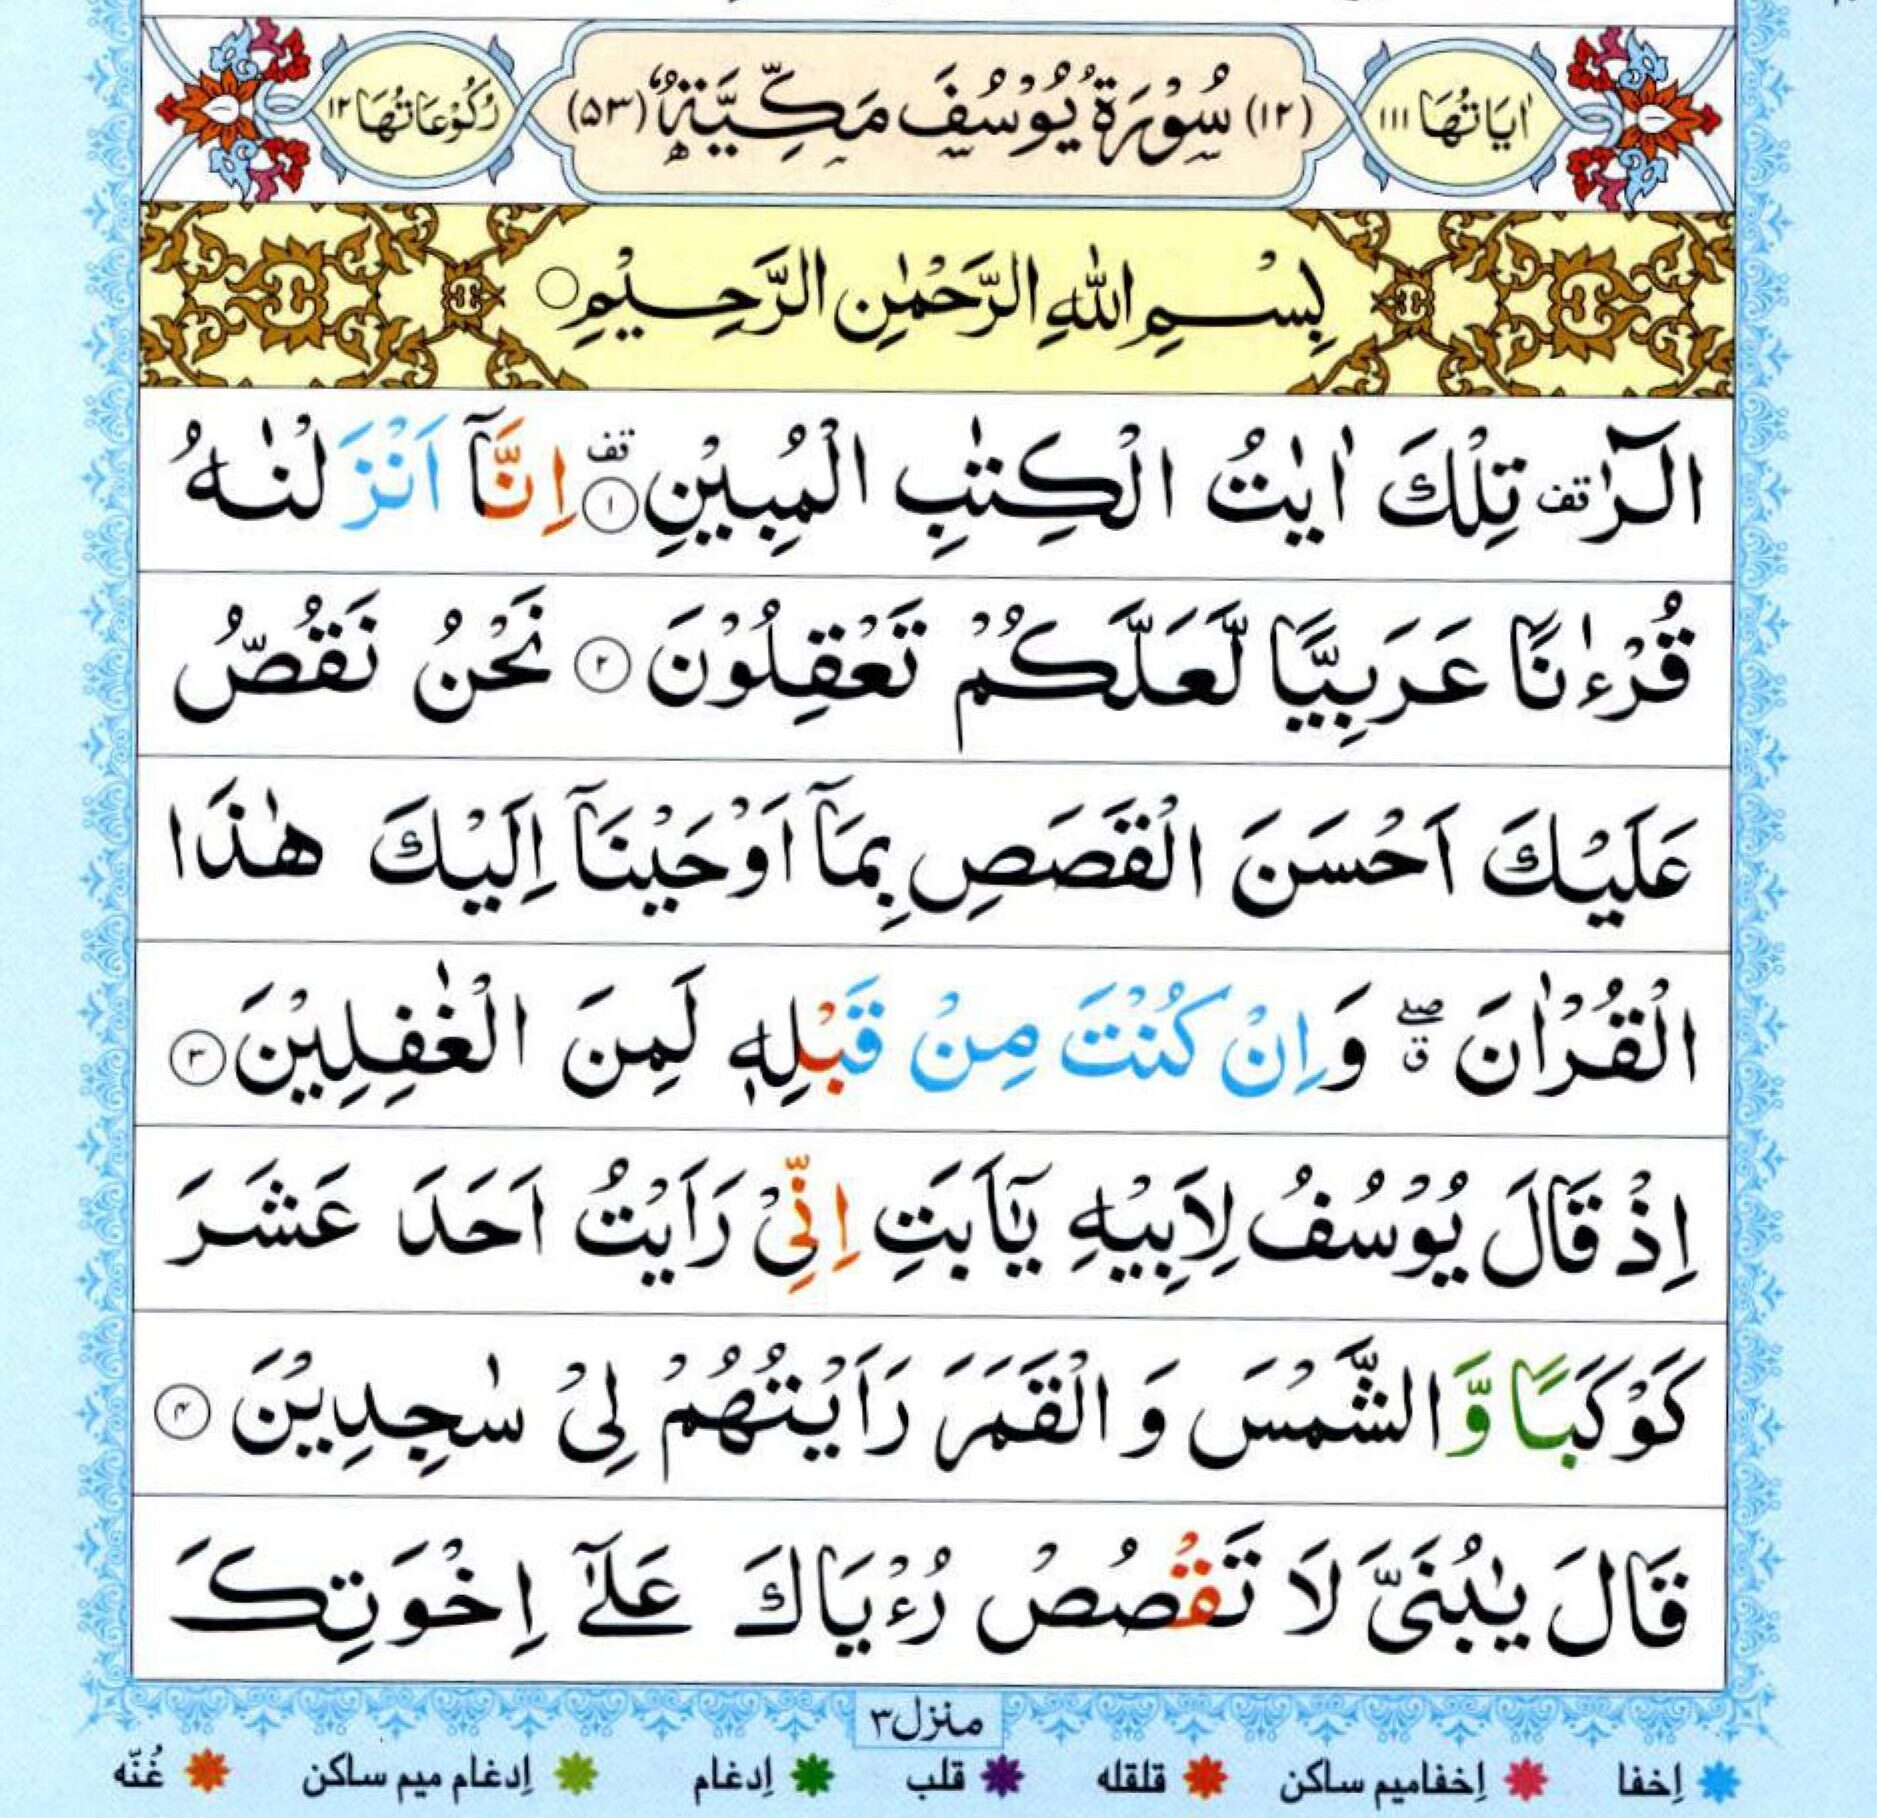 اٰیَاتُهَا ۱۱۱ (۱۲) سُوْرَةُ یُوْسُفَ مَكِّیَّةٌ (۵۳) رُكُوْعَاتُهَا ۱۲
بِسْمِ اللّٰهِ الرَّحْمٰنِ الرَّحِیْمِ
الٓرٰ تف تِلْكَ اٰیٰتُ الْكِتٰبِ الْمُبِیْنِ ۱ تف اِنَّاۤ اَنْزَلْنٰهُ
قُرْءٰنًا عَرَبِیًّا لَّعَلَّكُمْ تَعْقِلُوْنَ ۲ نَحْنُ نَقُصُّ
عَلَیْكَ اَحْسَنَ الْقَصَصِ بِمَاۤ اَوْحَیْنَاۤ اِلَیْكَ هٰذَا
الْقُرْاٰنَ ۖ ق وَاِنْ كُنْتَ مِنْ قَبْلِهٖ لَمِنَ الْغٰفِلِیْنَ ۳
اِذْ قَالَ یُوْسُفُ لِاَبِیْهِ یٰۤاَبَتِ اِنِّیْ رَاَیْتُ اَحَدَ عَشَرَ
كَوْكَبًا وَّالشَّمْسَ وَ الْقَمَرَ رَاَیْتُهُمْ لِیْ سٰجِدِیْنَ ۴
قَالَ یٰبُنَیَّ لَا تَقْصُصْ رُءْیَاكَ عَلٰۤی اِخْوَتِكَ
منزل۳
اِخفا اِخفامیم ساكن قلقله قلب اِدغام اِدغام میم ساكن غُنّه